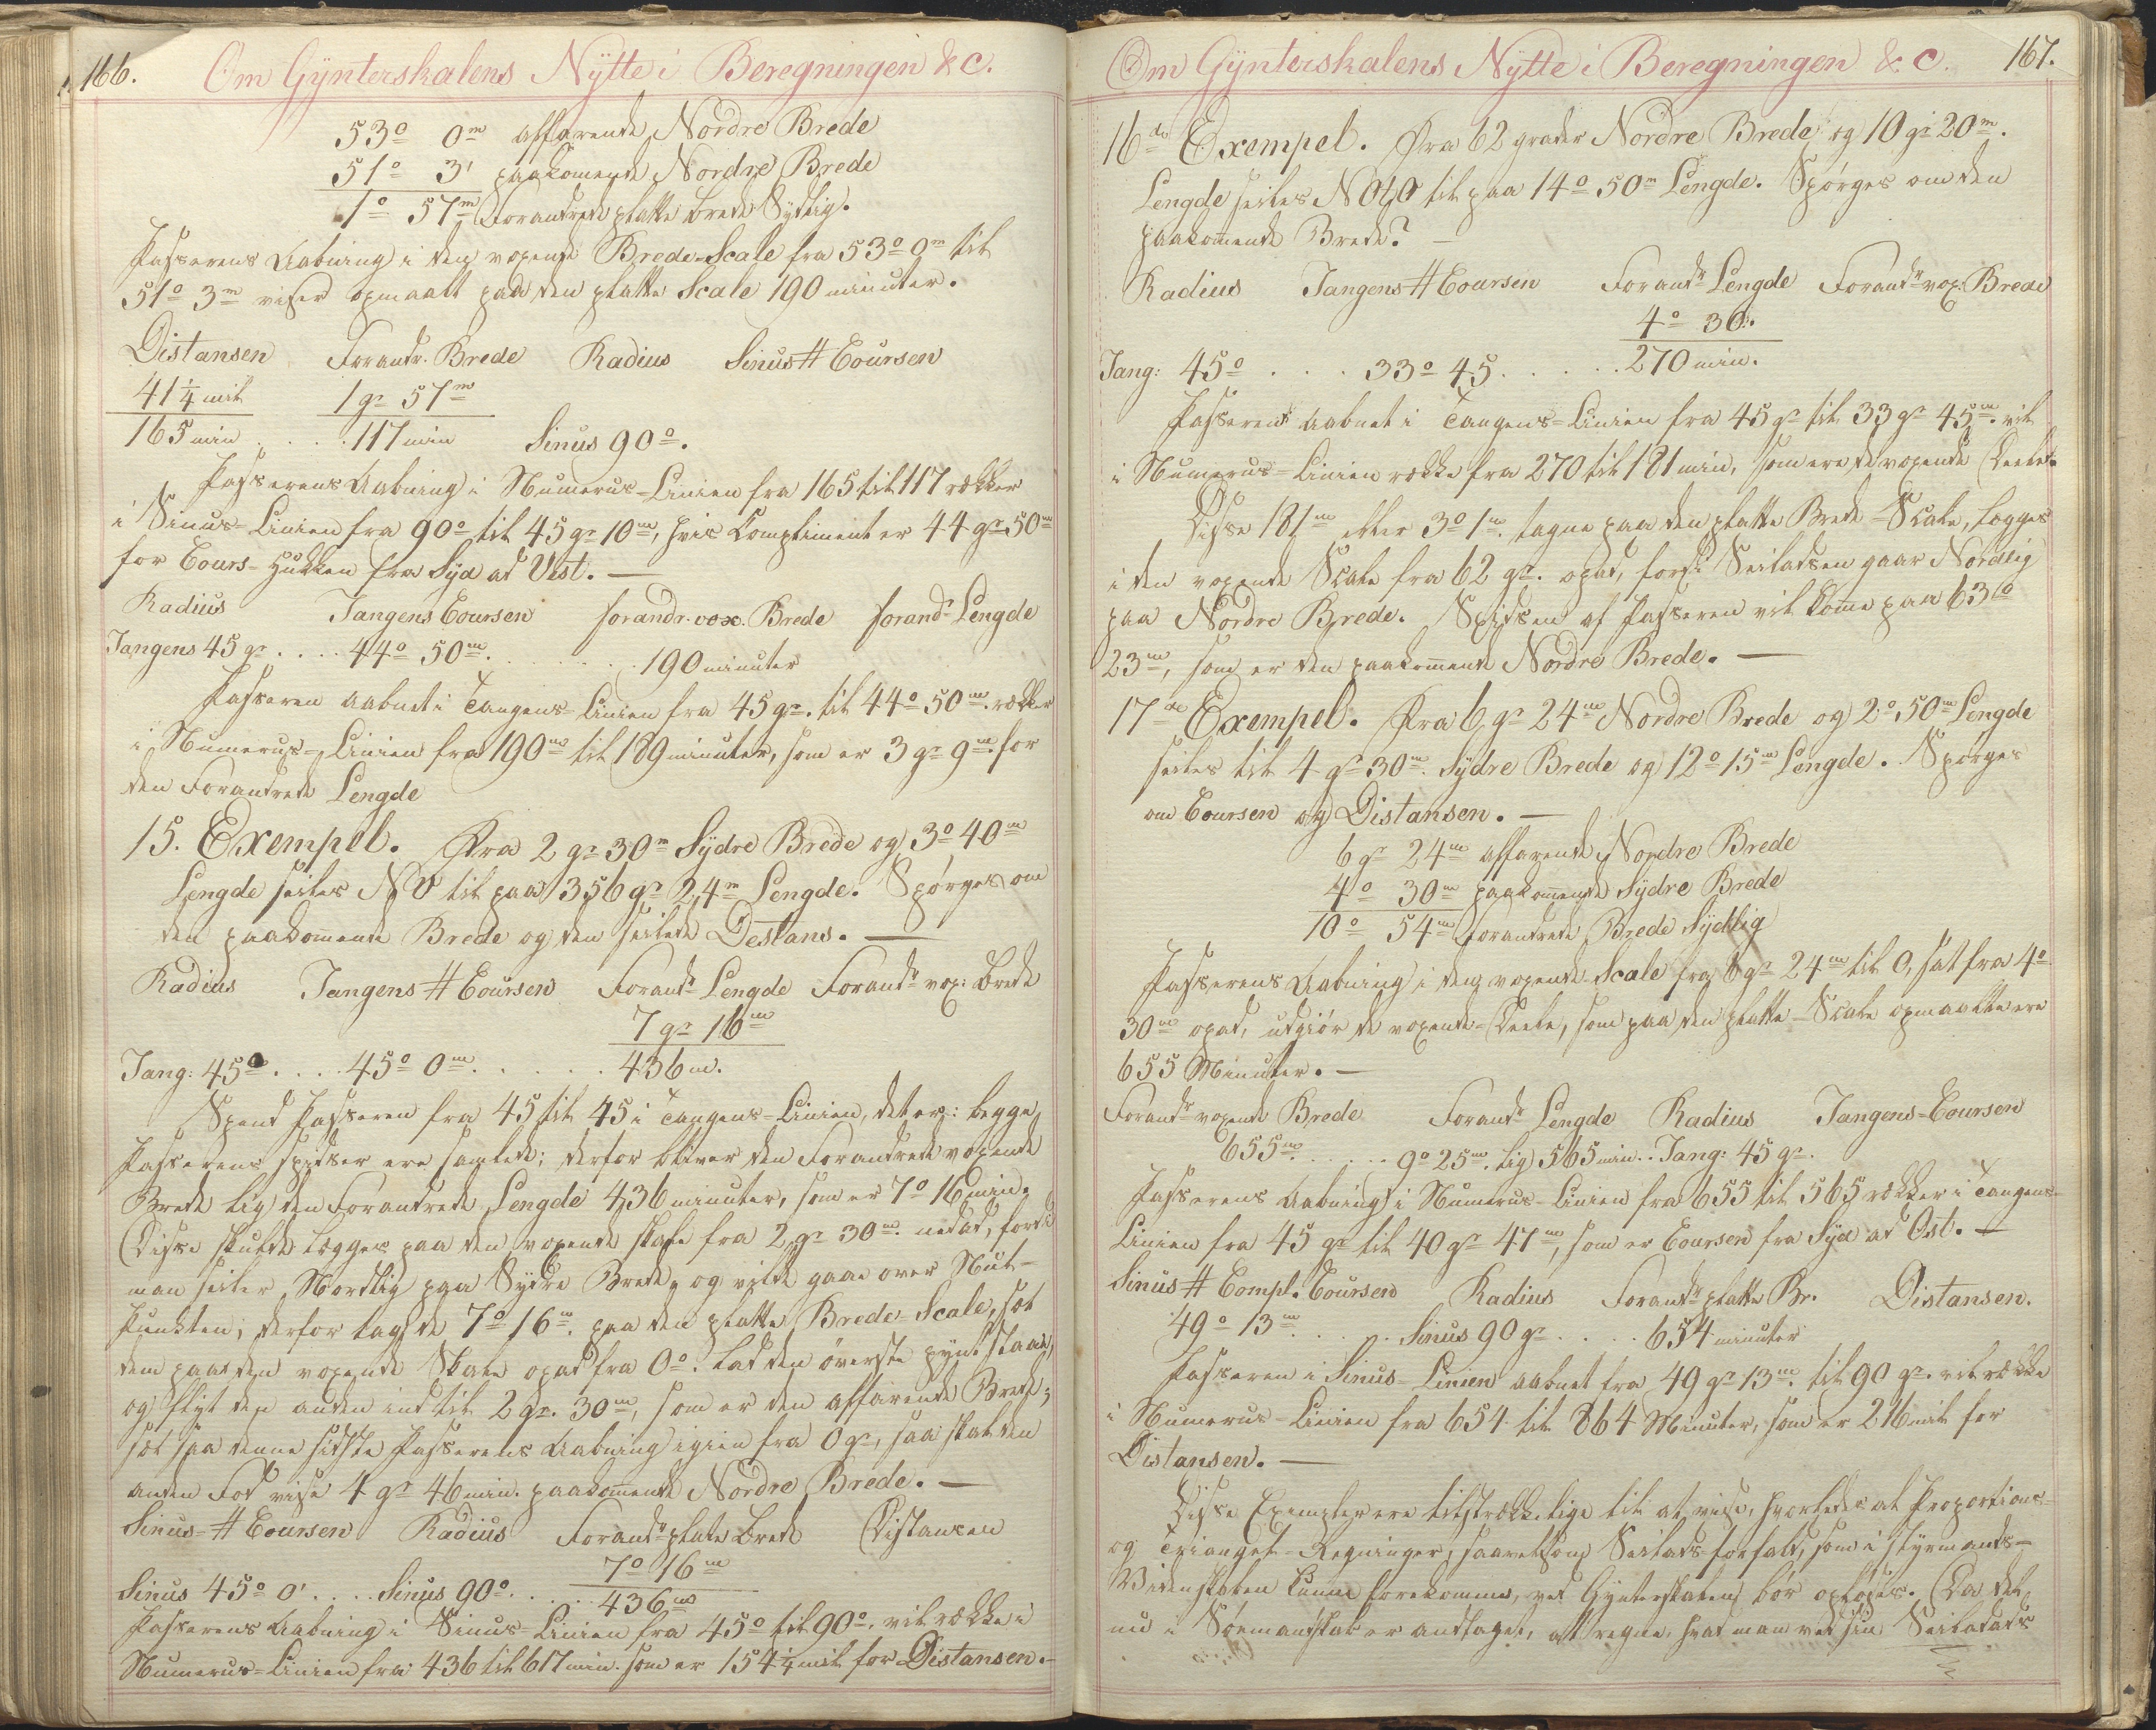 166.
Om Gÿnterskalens Nÿtte i Beregningen &c.
53° 0m affarende Nordre Brede
51° 3' paakomende Nordre Brede
1° 57m Forandrede platte brede Sÿdlig.
Passerens Aabning i den voxende Brede-Scale fra 53° 0m til
51° 3m viser opmaalt paa den platte Scale 190 minuter.
Distansen Forandr. Brede Radius Sinus # Coursen
41¼ mil 1 gr 57m
165 min . . . . 117 min Sinus 90°.
Passerens Aabning i Numerus-Linien fra 165 til 117 rækker
i Sinus-Linien fra 90° til 45 gr 10m, hvis Compliment er 44 gr 50m
for Cours-Hukken fra Syd ad Vest. —
Radius Tangens Coursen forandr. vox. Brede forandr Lengde
Tangens 45 gr . . . . 44° 50m . . . . . . 190 minuter
Passeren aabnet i Tangens-Linien fra 45 gr. til 44° 50m rækker
i Numerus-Linien fra 190m til 189 minuter, som er 3 gr 9m for
den Forandrede Lengde
15. Exempel. Fra 2 gr 30m Sÿdre Brede og 3° 40m
Lengde seiles NV til paa 356 gr 24m Lengde. Spørges om
den paakommende Brede og den seilede Destans. —
Radius Tangens # Coursen Forandr Lengde Forandr vox: brede
7 gr 16m
Tang: 45° . . . . 45° 0m . . . . . 436 m.
Spend Passeren fra 45 til 45 i Tangens-Linien, det er: begge
Passerens spidser ere samlede; derfor bliver den Forandrede voxende
Brede lig den Forandrede Lengde 436 minuter, som er 7° 16 min.
Disse skulde legges paa den voxende skale fra 2 gr 30m nedad, fordi
man seiler Nordlig paa Sÿdre Brede, og vilde gaae over Nul-
Punkten; derfor tag de 7° 16m paa den platte Brede-Scale, sæt
dem paa den voxende Skale opad fra 0°. Lad den øverste pÿnt staae,
og flyt den anden ind til 2 gr. 30m, som er den affarende Brede;
sæt saa denne sidste Passerens Aabning igien fra 0 gr, saa skal den
anden Fod vise 4 gr 46 min. paakommende Nordre Brede. —
Sinus-# Coursen Radius Forandr plate brede Distansen
7° 16m
Sinus 45° 0' . . . . Sinus 90° . . . . . 436m
Passerens Aabning i Sinus-Linien fra 45° til 90°. vil række i
Numerus-Linien fra 436 til 617 min. som er 154¼ mil for Distansen. —
Om Gÿnterskalens Nÿtte i Beregningen & c.
167.
16de Exempel. Fra 62 grader Nordre Brede og 10 gr 20m.
Lengde seiles NOtO til paa 14° 50m Lengde. Spørges om den
paakommende Brede? —
Radius Tangens # Coursen Forandr Lengde Forandr vox: Brede
4° 30.
Tang: 45° . . . 33° 45 . . . . . 270 min.
Passeren aabnet i Tangens-Linien fra 45 gr til 33 gr 45m vil
i Numerus-Linien række fra 270 til 181 min, som ere de voxende Deele.
Disse 181m eller 3° 1m. tagne paa den platte Brede-Scale, legges
i den voxende Scale fra 62 gr. opad, fordi Seiladsen gaar Nordlig
paa Nordre Brede. Spidsen af Passeren vil komme paa 63°
23m, som er den paakommende Nordre Brede. —
17de Exempel. Fra 6 gr 24m Nordre Brede og 2° 50m Lengde
seiles til 4 gr 30m. Sÿdre Brede og 12° 15m Lengde. Spørges
om Coursen og Distansen. —
6 gr 24m affarende Nordre Brede
4° 30m paakommende Sÿdre Brede
10° 54m Forandrede Brede Sÿdlig
Passerens Aabning i den voxende Scale fra 6 gr 24m til 0, sat fra 4°
30m opad, udgiør de voxende-Deele, som paa den platte-Scale opmaalte ere
655 Minuter. —
Forandr voxende Brede Forandr Lengde Radius Tangens-Coursen
655m . . . . . 9° 25m. lig 565 min. . Tang: 45 gr.
Passerens Aabning i Numerus-Linien fra 655 til 565 rækker i Tangens-
Linien fra 45 gr til 40 gr 47m, som er Coursen fra Syd ad Ost. —
Sinus # Compl. Coursen Radius Forandr platte Br. Distansen.
49° 13m . . . . . Sinus 90 gr . . . . 654 minuter
Passeren i Sinus-Linien aabnet fra 49 gr 13m. til 90 gr. vil række
i Numerus-Linien fra 654 til 864 Minuter, som er 216 mil for
Distansen. —
Disse Exempler ere tilstrækkelige til at vise, hvorledes at Proportions-
og Triangel-Regninger, saavelsom Seilads-forfald, som i Styrmands-
Videnskaben kunne forekomme, ved Gynterskalen bør opløses. Da det
nu i Sømandskab er antaget, at regne, hvad man ved sin Seiladses